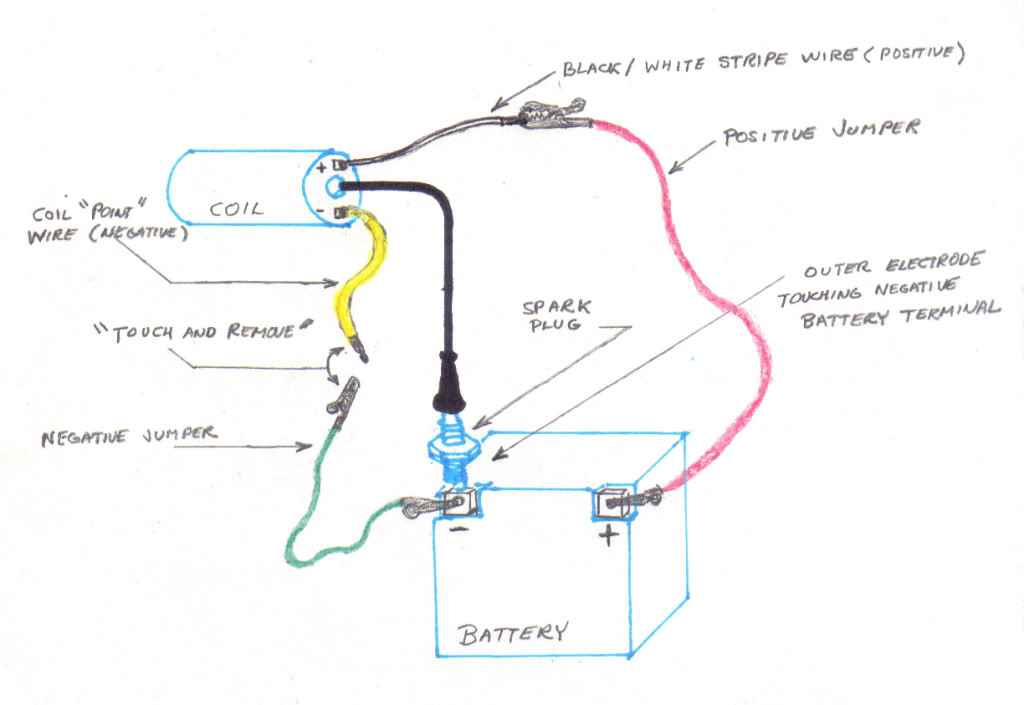 BLACK/ WHITE STRIPE WIRE (POSITIVE)
POSITIVE JUMPER
+
COIL
-
COIL "POINT"
WIRE (NEGATIVE)
OUTER ELECTRODE
TOUCHING NEGATIVE
BATTERY TERMINAL
SPARK
PLUG
"TOUCH AND REMOVE"
NEGATIVE JUMPER
-
+
BATTERY